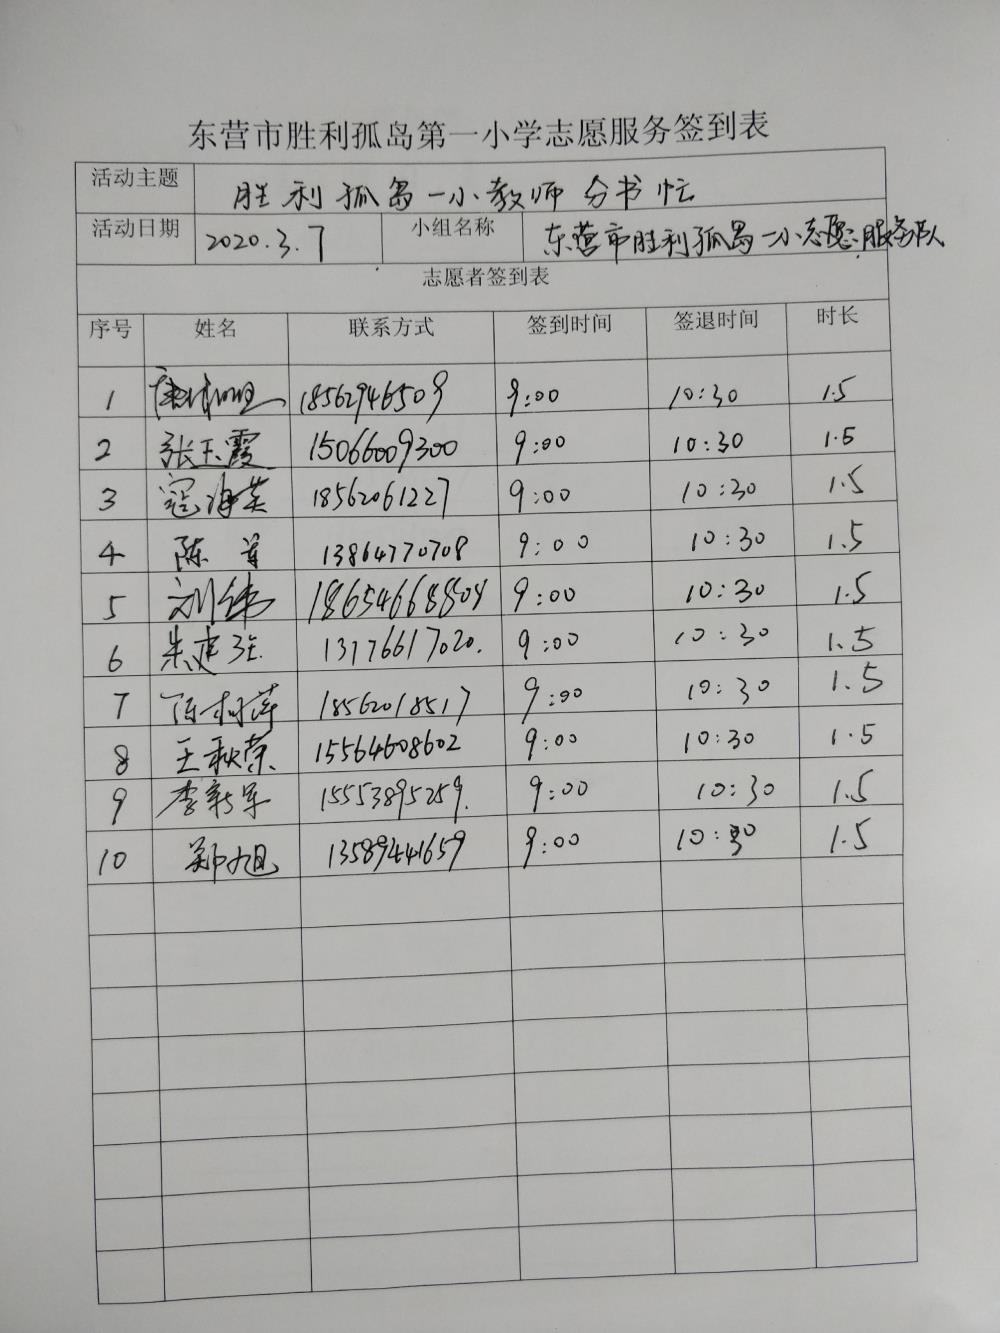 东营市胜利孤岛第一小学志愿服务签到表
活动主题 胜利孤岛一小教师分书忙
活动日期 2020.3.7 小组名称 东营市胜利孤岛一小志愿服务队
志愿者签到表
序号 姓名 联系方式 签到时间 签退时间 时长
1 18562946509 9:00 10:30 1.5
2 张玉霞 15066009300 9:00 10:30 1.5
3 寇海英 18562061227 9:00 10:30 1.5
4 陈 13864770708 9:00 10:30 1.5
5 刘伟 18654668809 9:00 10:30 1.5
6 朱建强 13176617020. 9:00 10:30 1.5
7 陈树萍 18562018517 9:00 10:30 1.5
8 王秋荣 15564608602 9:00 10:30 1.5
9 李新军 15553895259. 9:00 10:30 1.5
10 郑旭 13589441659 9:00 10:30 1.5